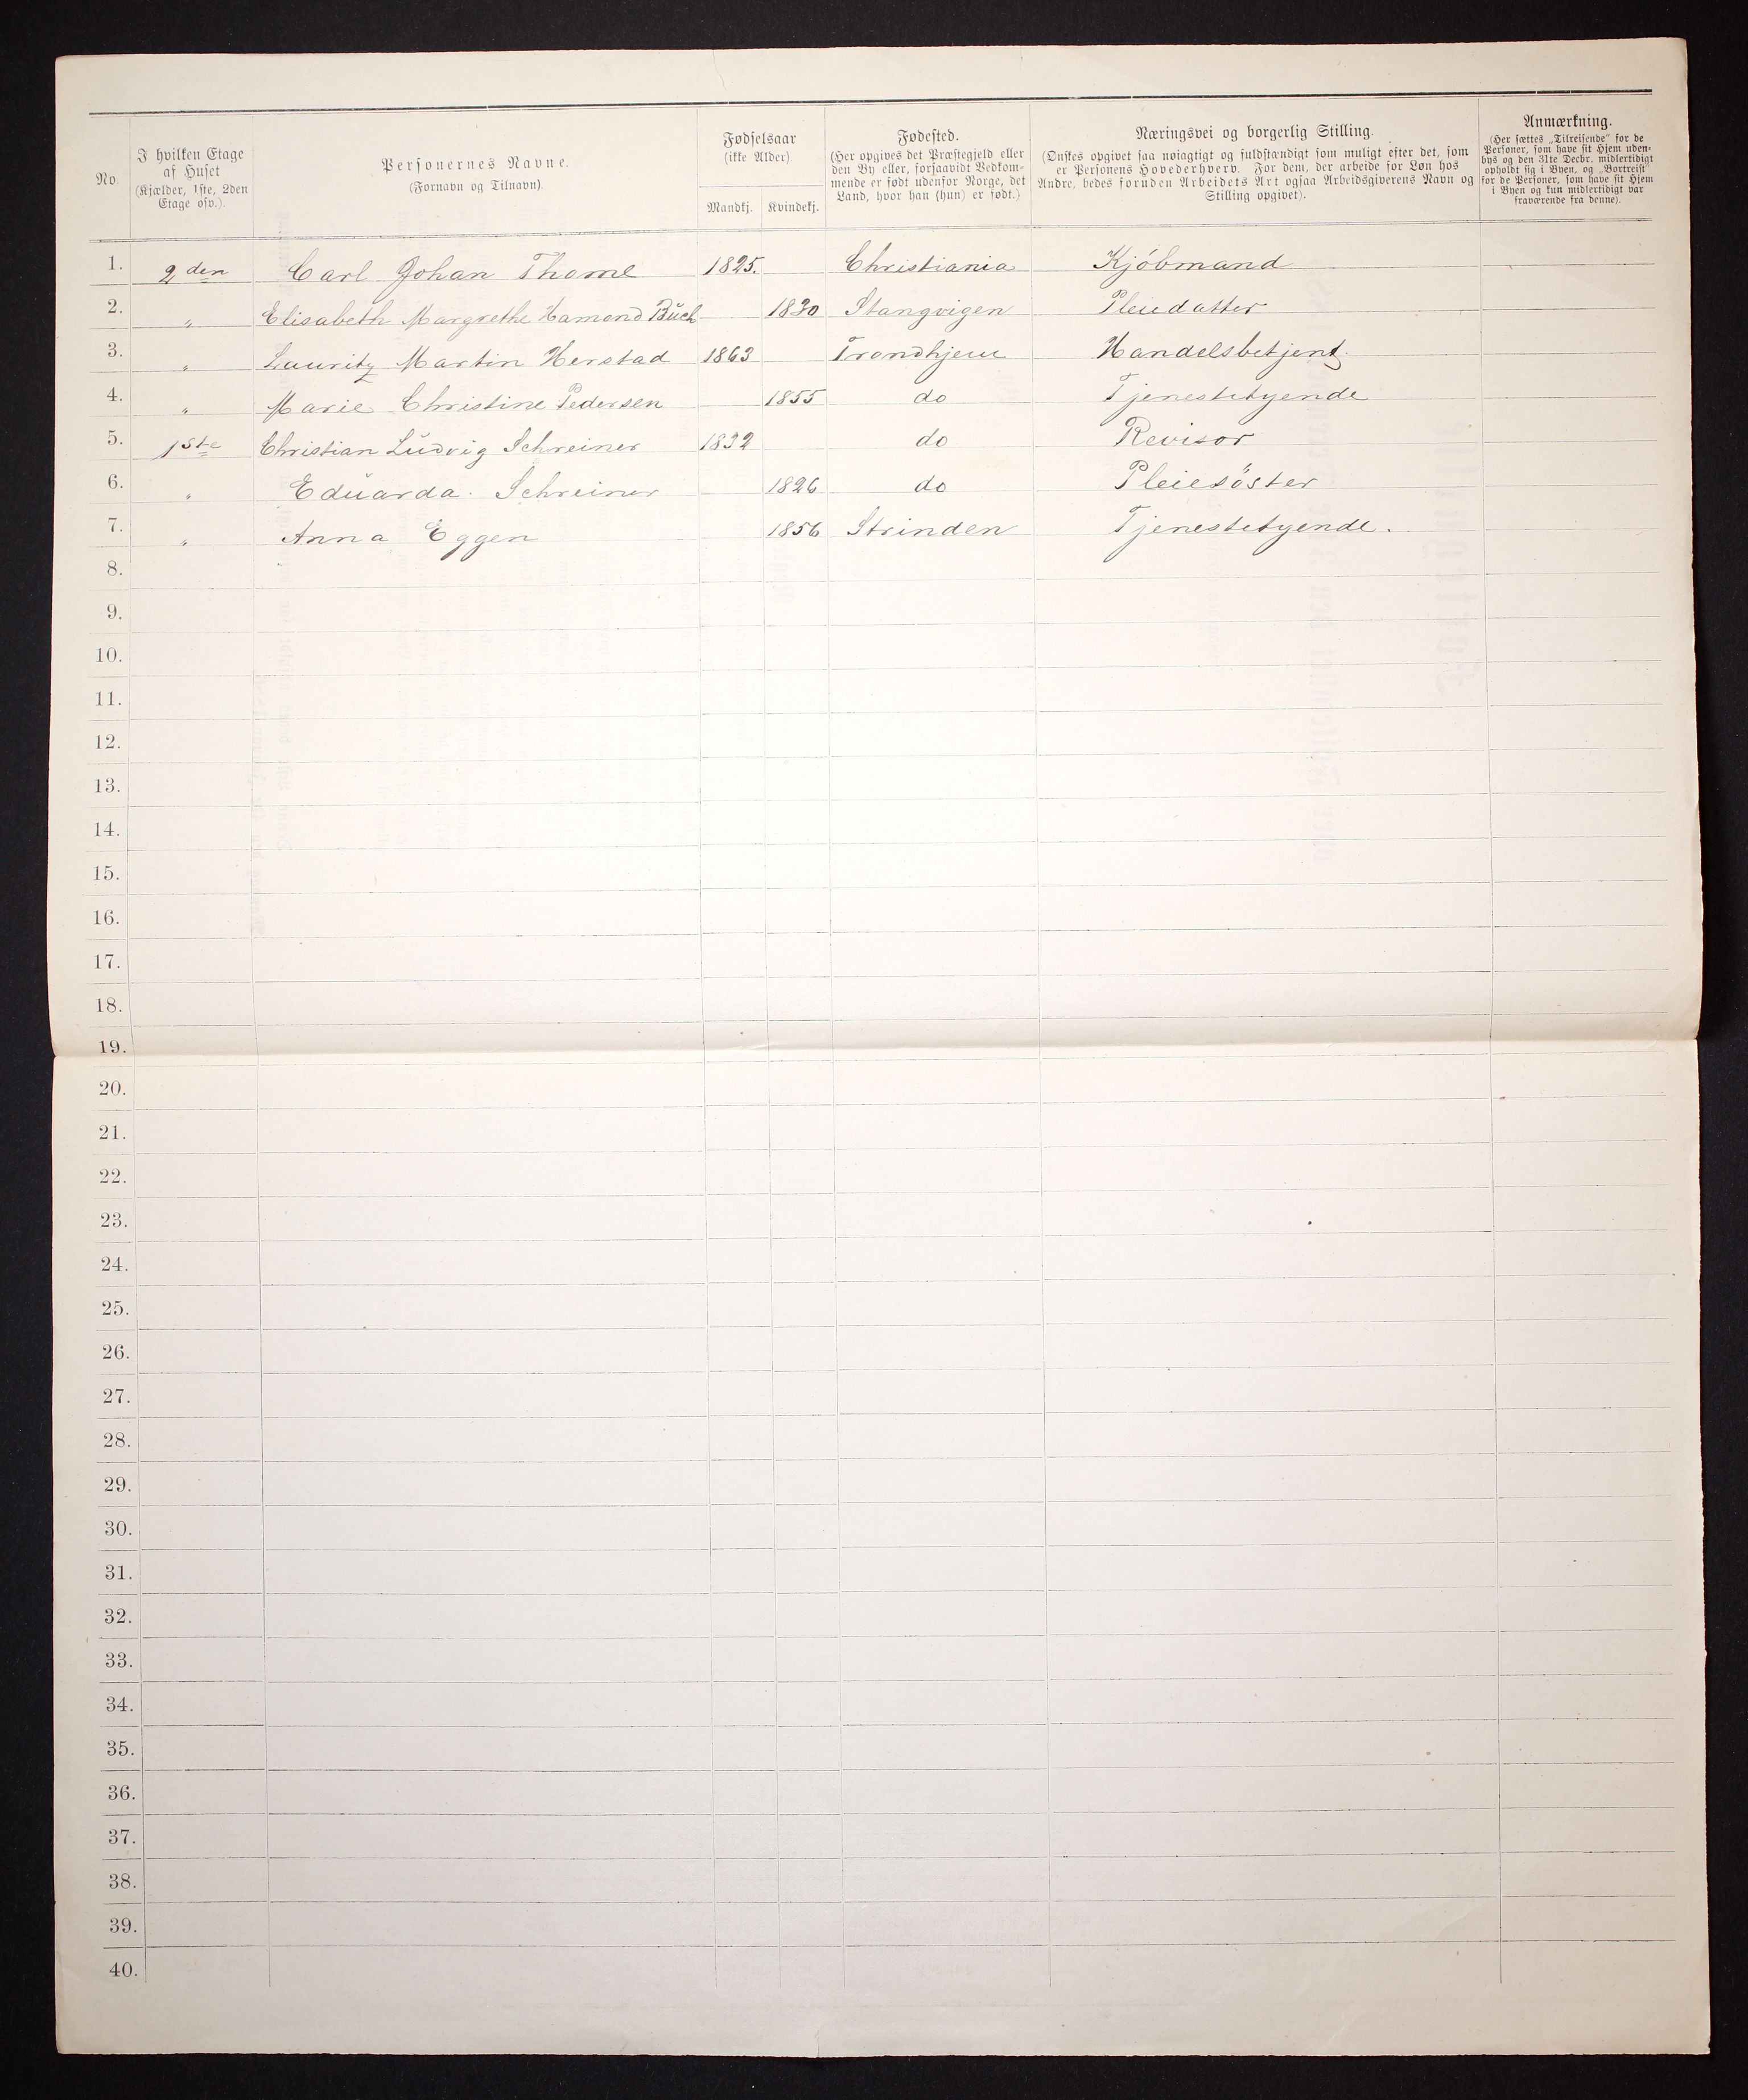 No.
I hvilken Etage
af Huset
(Kjælder, 1ste, 2den
Etage osv.).
Personernes Navne.
(Fornavn og Tilnavn).
Fødselsaar
(ikke Alder).
Mandkj. Kvindekj.
Fødested.
(Her opgives det Præstegjeld eller
den By eller, forsaavidt Vedkom-
mende er født udenfor Norge, det
Land, hvor han (hun) er født.)
Næringsvei og borgerlig Stilling.
(Ønskes opgivet saa nøiagtigt og fuldstændigt som muligt efter det, som
er Personens Hovederhverv. For dem, der arbeide for Løn hos
Andre, bedes foruden Arbeidets Art ogsaa Arbeidsgiverens Navn og
Stilling opgivet).
Anmærkning.
(Her sættes „Tilreisende" for de
Personer, som have sit Hjem uden-
bys og den 31te Decbr. midlertidigt
opholdt sig i Byen, og „Bortreist"
for de Personer, som have sit Hjem
i Byen og kun midlertidigt var
fraværende fra denne).
1. 2den Carl Johan Thome 1825. Christiania Kjöbmand
2. " Elisabeth Margrethe Hamond Bŭch 1830 Stangvigen Pleiedatter
3. " Lauritz Martin Herstad 1863 Trondhjem Handelsbetjent.
4. " Marie Christine Pedersen 1855 do Tjenestetyende
5. 1ste Christian Lŭdvig Schreiner 1832 do Revisor
6. " Edŭarda. Schreiner 1826 do Pleiesöster
7. " Anna Eggen 1856 Strinden Tjenestetyende.
8.
9.
10.
11.
12.
13.
14.
15.
16.
17.
18.
19.
20.
21.
22.
23.
24.
25.
26.
27.
28.
29.
30.
31.
32.
33.
34.
35.
36.
37.
38.
39.
40.